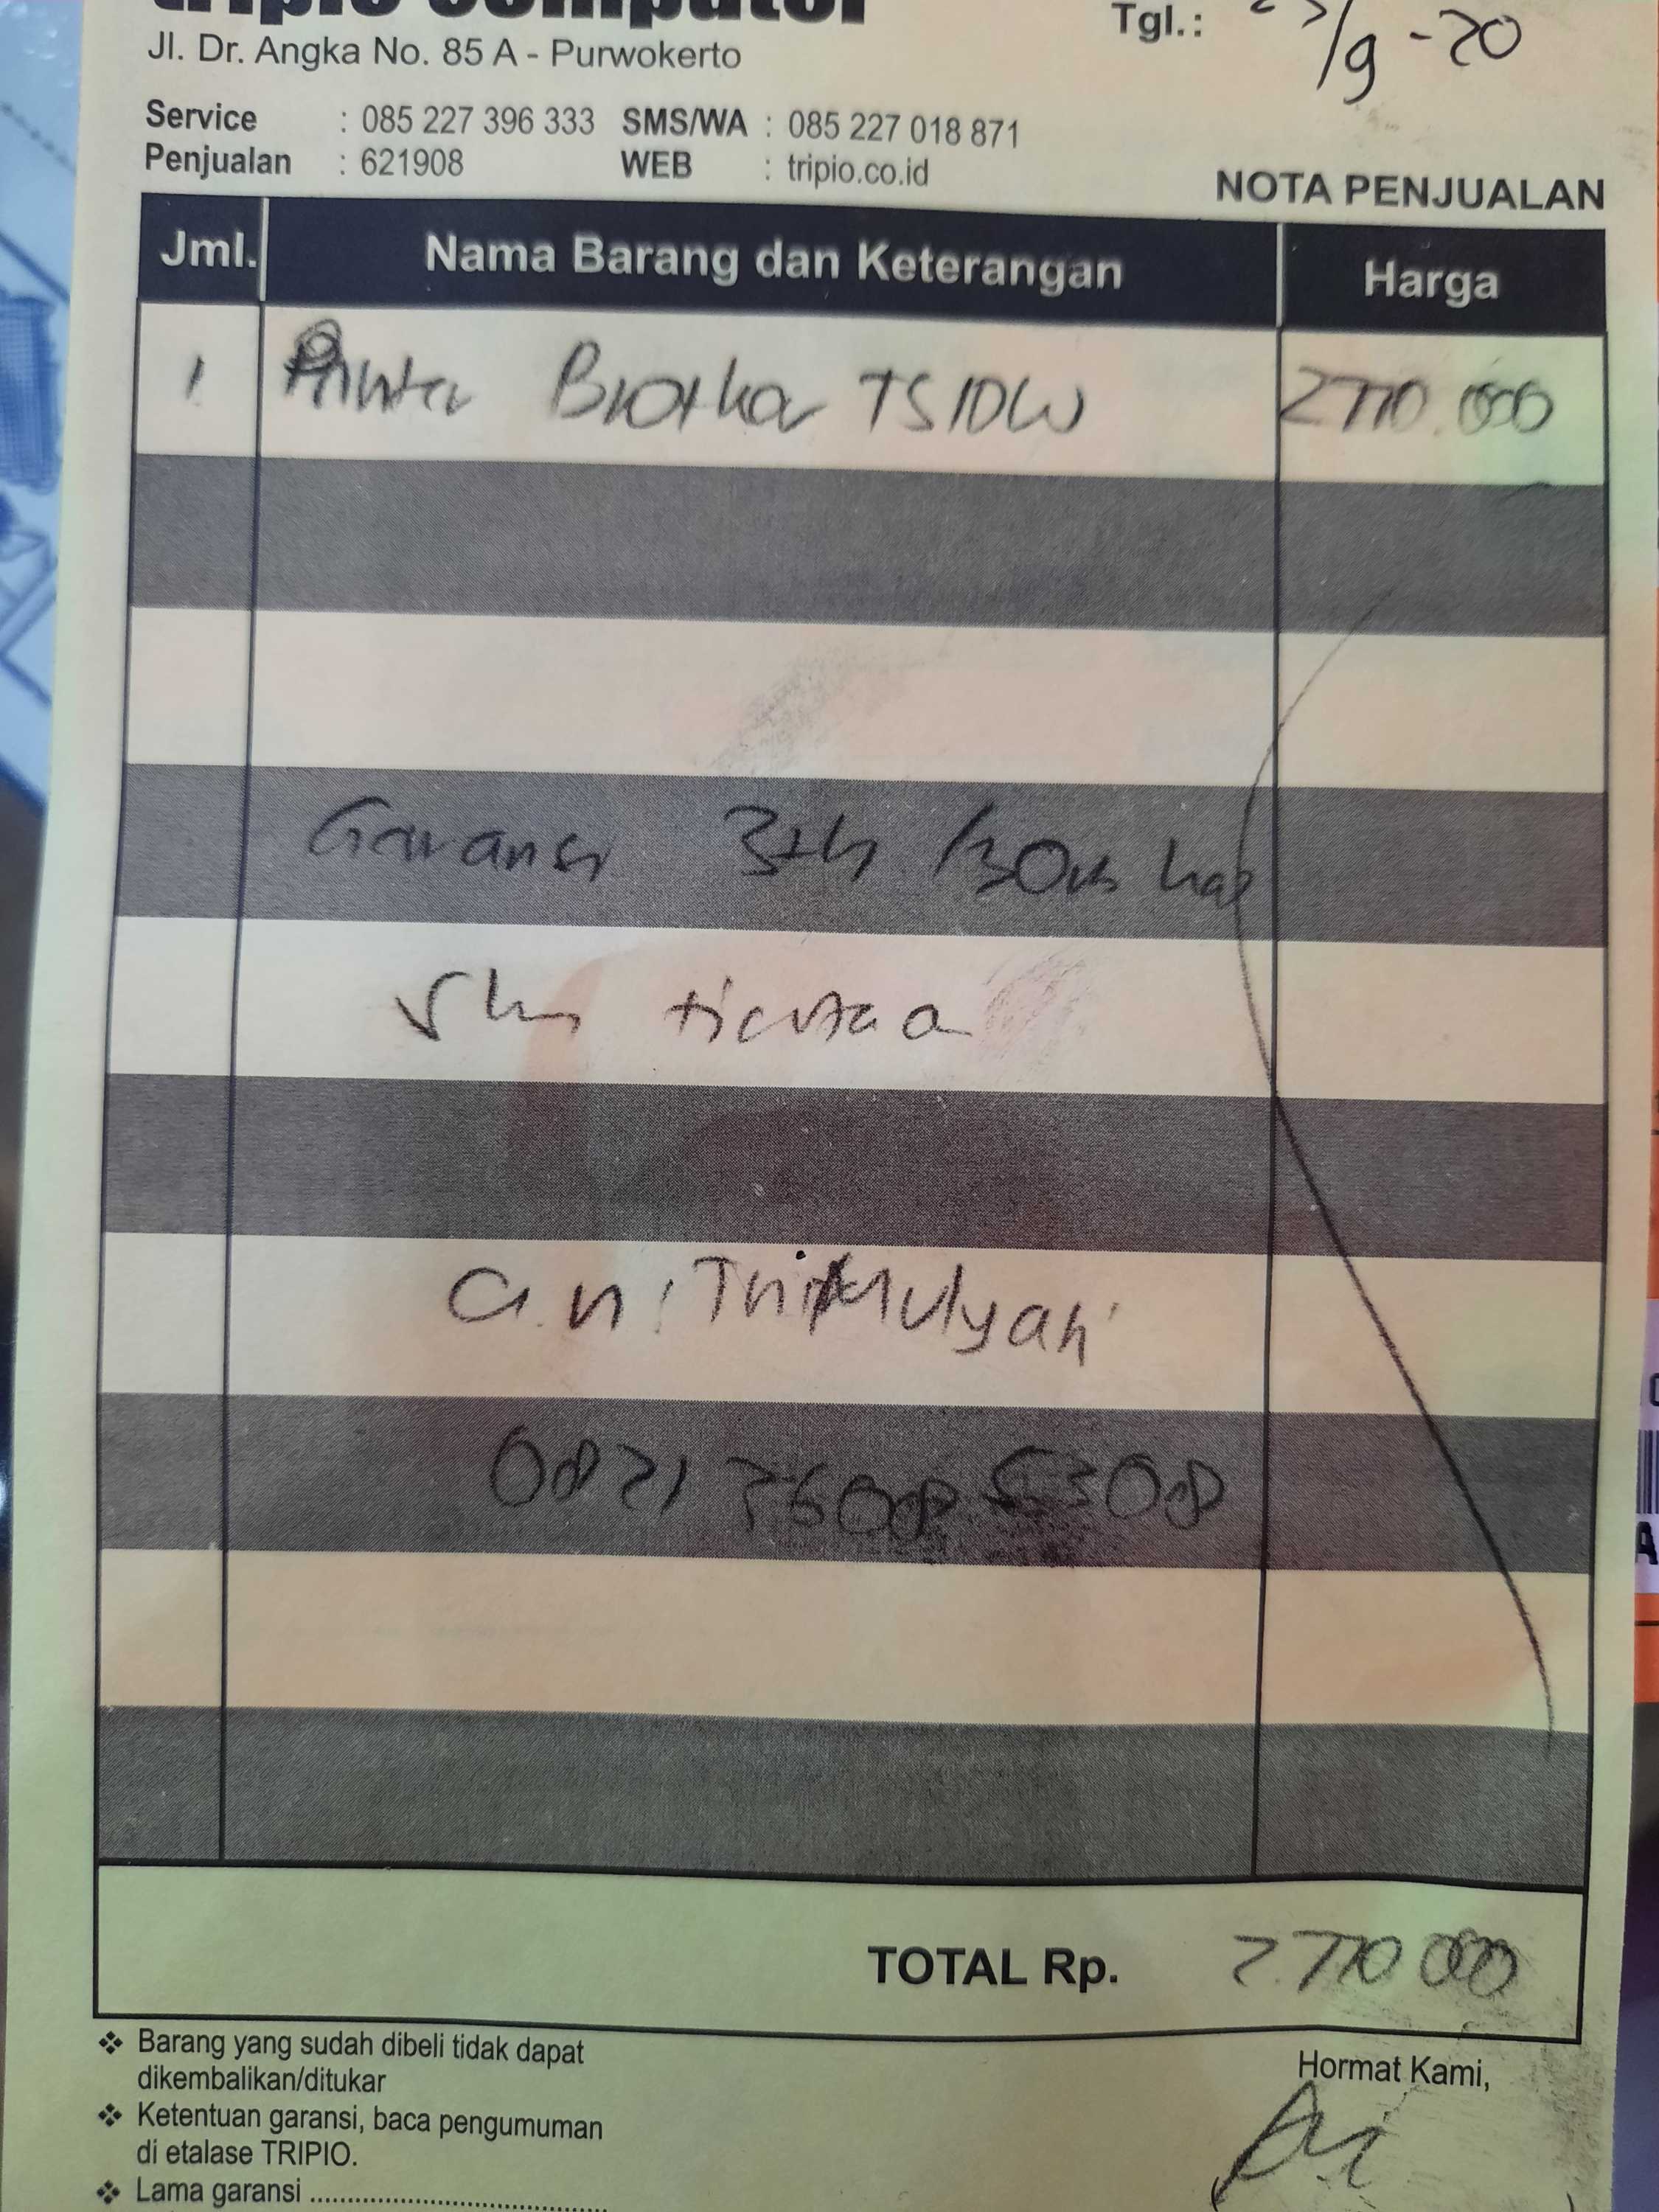 tripio computer
Jl. Dr. Angka No. 85 A - Purwokerto
Tgl.: /9 - 20
Service : 085 227 396 333 SMS/WA : 085 227 018 871
Penjualan : 621908 WEB : tripio.co.id
NOTA PENJUALAN
Jml. Nama Barang dan Keterangan Harga
1 Printer Brother T510W 2770.000
Garansi 3th /30rb
a.n : Tri Mulyati
0821 5308
TOTAL Rp. 2.770 000
❖ Barang yang sudah dibeli tidak dapat
dikembalikan/ditukar
Hormat Kami,
❖ Ketentuan garansi, baca pengumuman
di etalase TRIPIO.
❖ Lama garansi ........................................